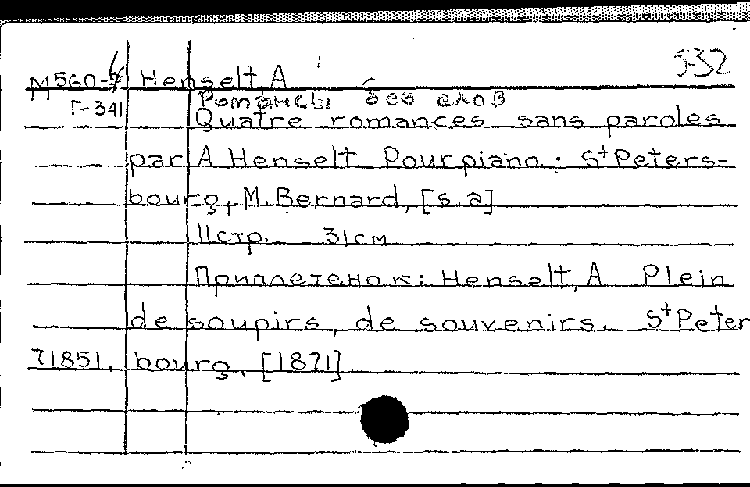 532
М560-6 Henselt, A
Г-341 Романсы без слов
Quatre romances sans paroles
par A Henselt Pour piano. St Peters-
bourg, M. Bernard, [s. a]
11 стр. 31 см
Приплетено к: Henselt, A Plein
de soupirs, de souvenirs. St Peter
71851. bourg, [1871]